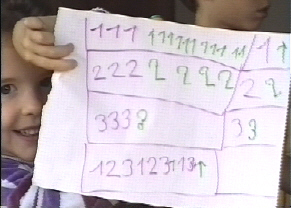 111 11111111 11 1 1
222 2 2 2 2 2 2
3333 33
123123113 1